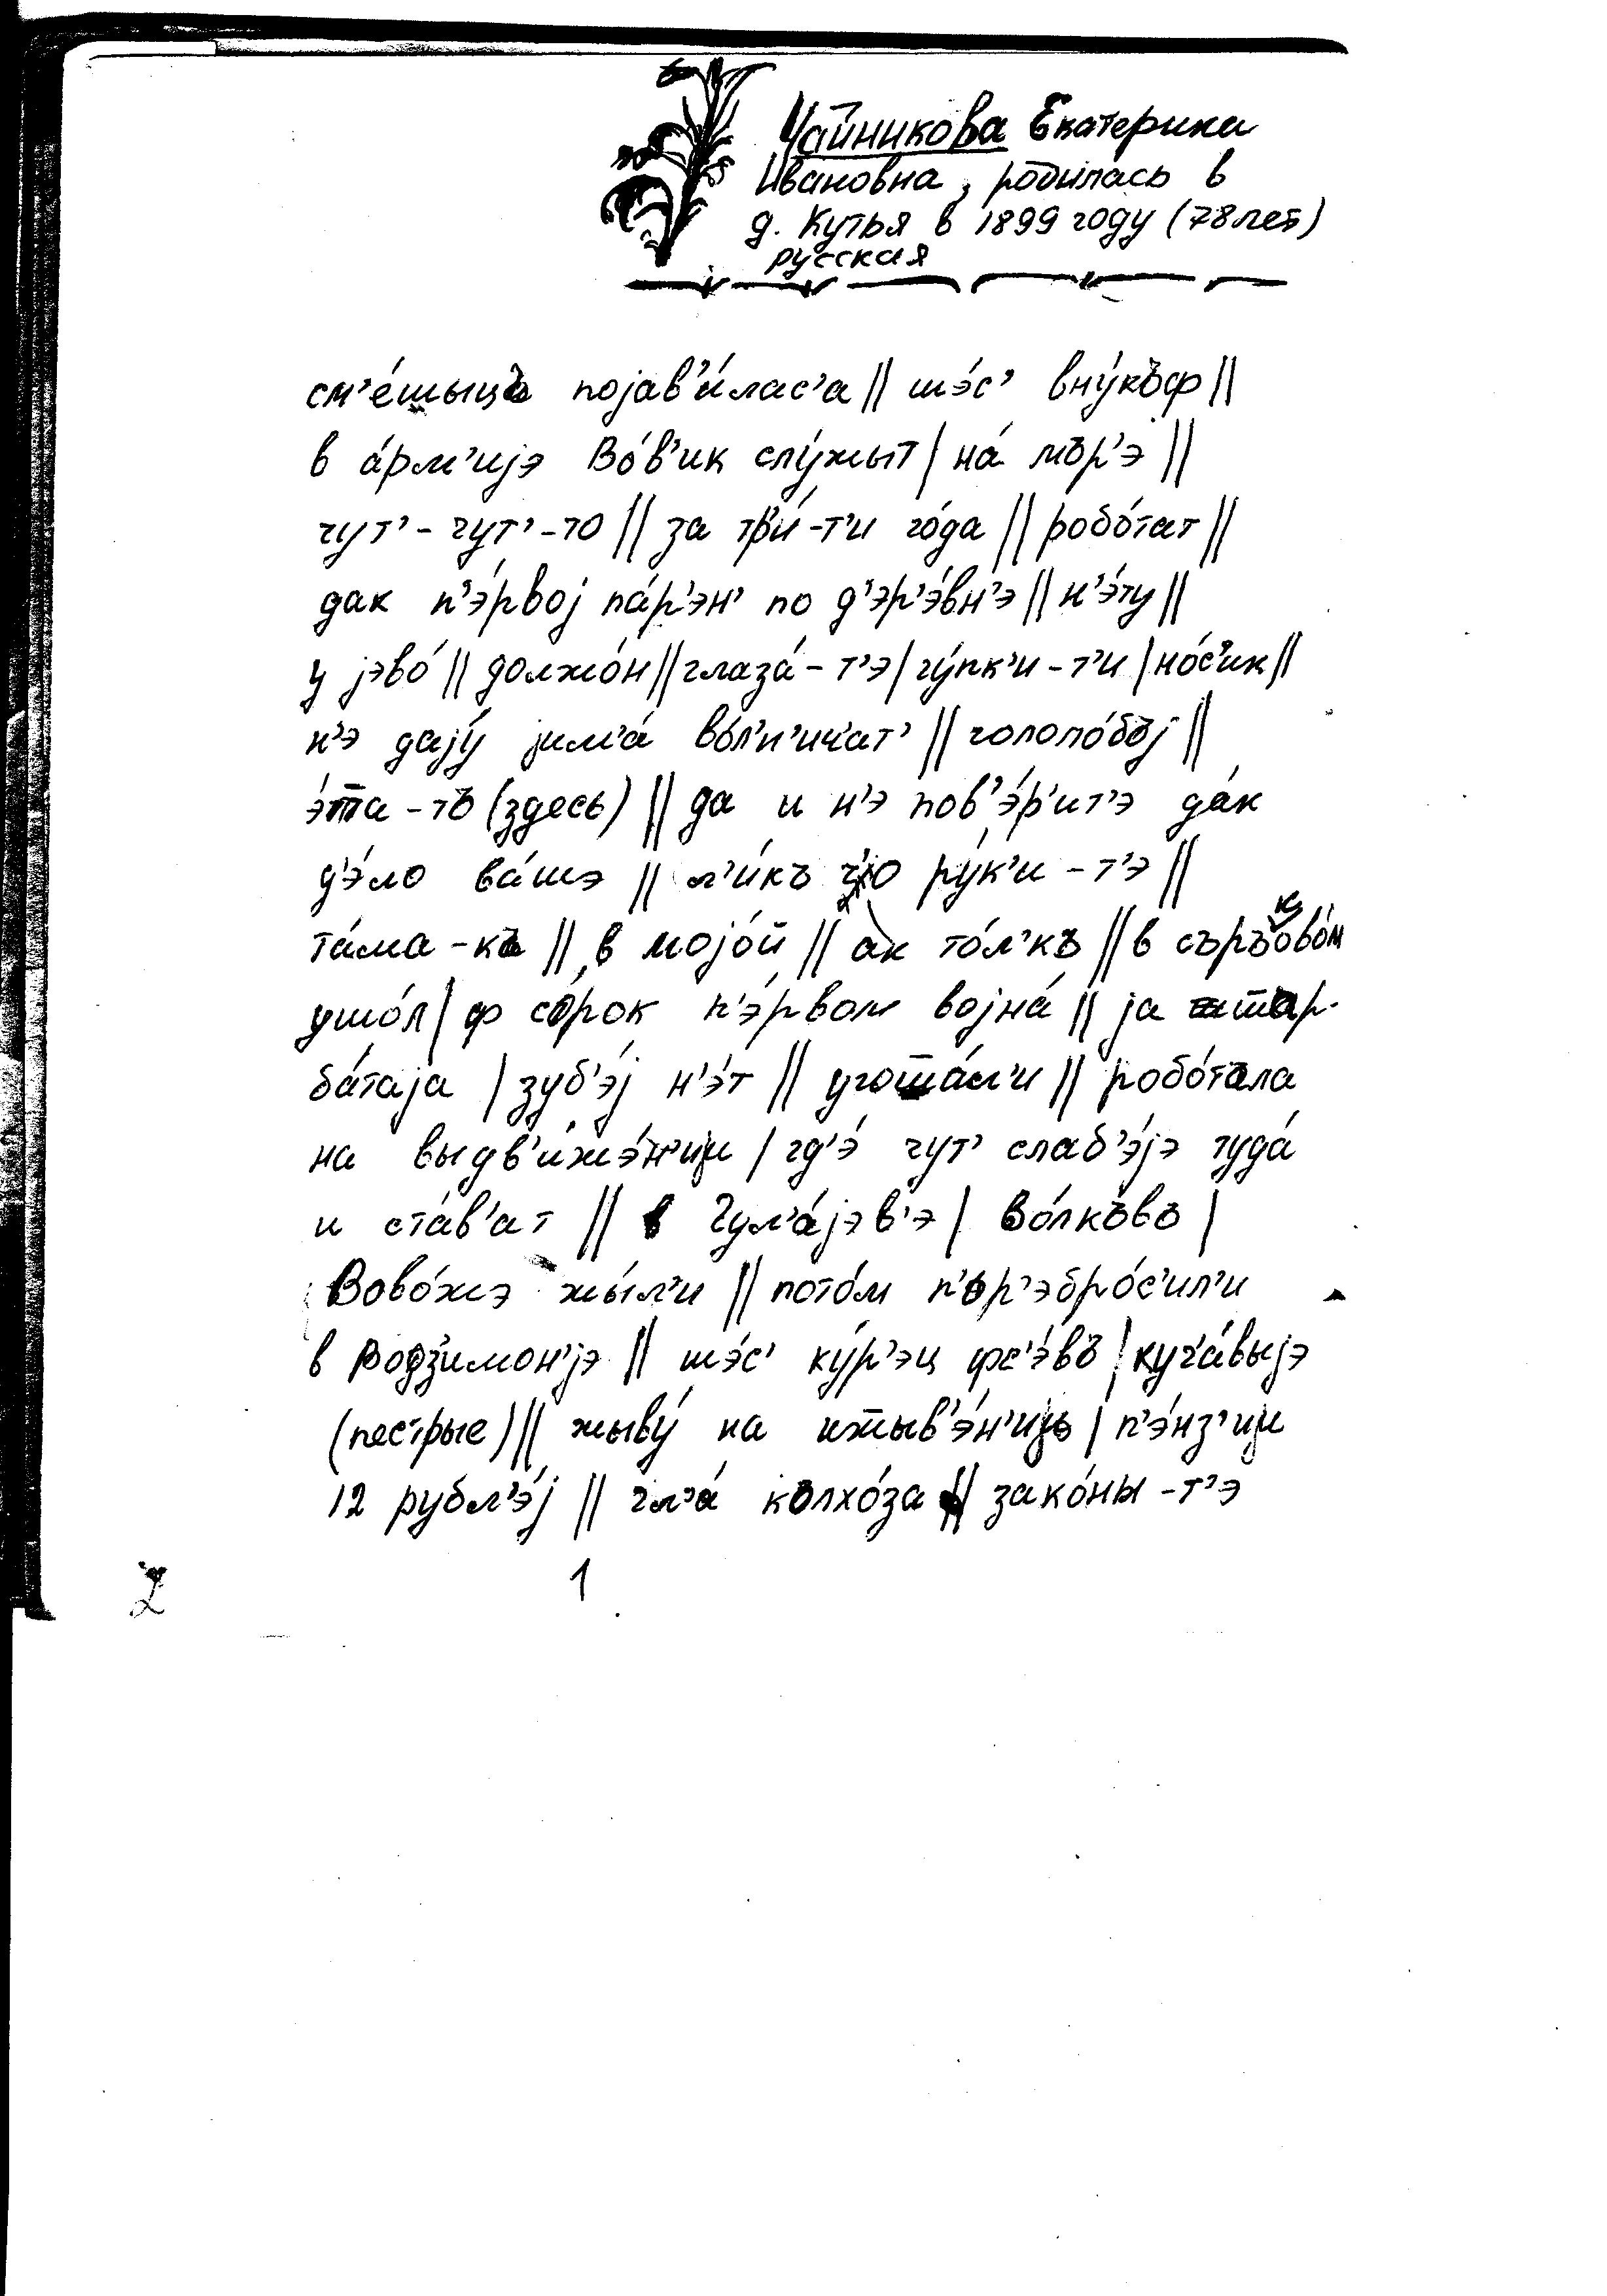 Чайникова Екатерина
Ивановна, родилась в
д. Кутья в 1899 году (78 лет)
русская
см'е́шыцъ појав'и́лас'а || шэ́с' вну́къф ||
в а́рм'иjэ Во́в'ик слу́жыт | на́ мър'э ||
чут'-чут'-то || за тр'и́-т'и го́да || робо́тат ||
дак п'э́рвој па́р'эн' по д'эр'э́вн'э || н'э́ту ||
у jэво́ || должо́н || глаза́-т'э | гу́пк'и-т'и | но́с'ик ||
н'э даjу́ jим'а́ во́л'н'ич'ат' || голопо́бъj ||
э́та-тъ (здесь) || да и н'э пов'э́р'ит'э да́к
д'э́ло ва́шэ || л'и́къ чо ру́к'и-т'э ||
та́ма-къ || в моjо́й || ак то́л'къ || в съръковом
ушо́л | ф со́рок п'э́рвом војна́ || jа штар-
ба́таjа | зуб'э́j н'э́т || угоша́л'и || робо́тала
на выдв'ижэ́н'иjи | гд'э́ чут' слаб'э́jэ туда́
и ста́в'ат || в Гул'а́jэв'э | Во́лкъвъ |
Вово́жэ жы́л'и || пото́м п'эр'эбро́с'ил'и
в Водзимон'jэ || шэ́с' ку́р'эц фс'э́въ | куч'а́выjэ
(пестрые) || жыву́ на ижыв'э́н'иjь | п'э́нз'иjи
12 рубл'э́j || гл'а́ колхо́за || зако́ны-т'э
1
2